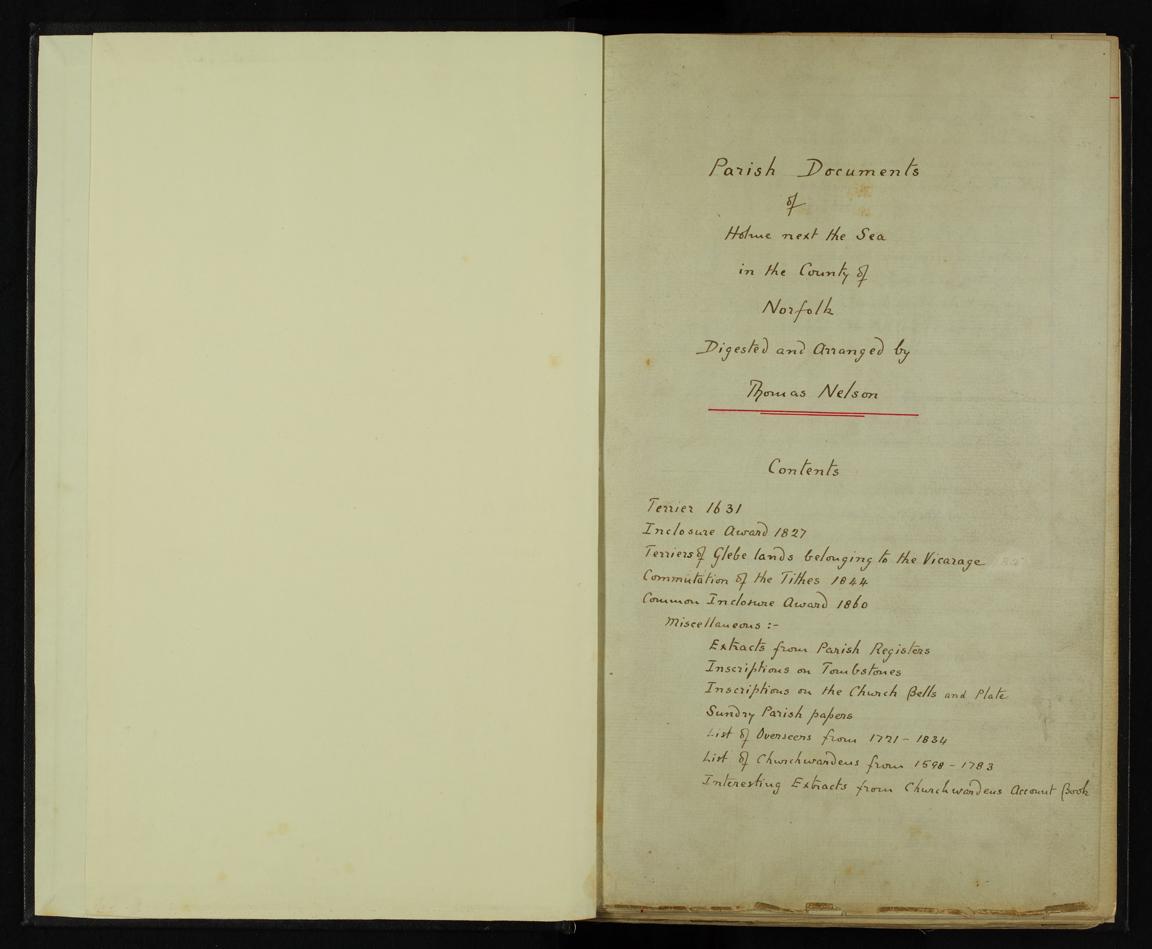 Parish Documents
of
Holme next the Sea
in the County of
Norfolk
Digested and Arranged by
Thomas Nelson
Contents
Terrier 1631
Inclosure Award 1827
Terriers of Glebe lands belonging to the Vicarage
Commutation of the Tithes 1844
Common Inclosure Award 1860
Miscellaneous :-
Extracts from Parish Registers
Inscriptions on Tombstones
Inscriptions on the Church Bells and Plate
Sundry Parish papers
List of Overseers from 1721 - 1834
List of Churchwardens from 1598 - 1783
Interesting Extracts from Churchwardens Account Book